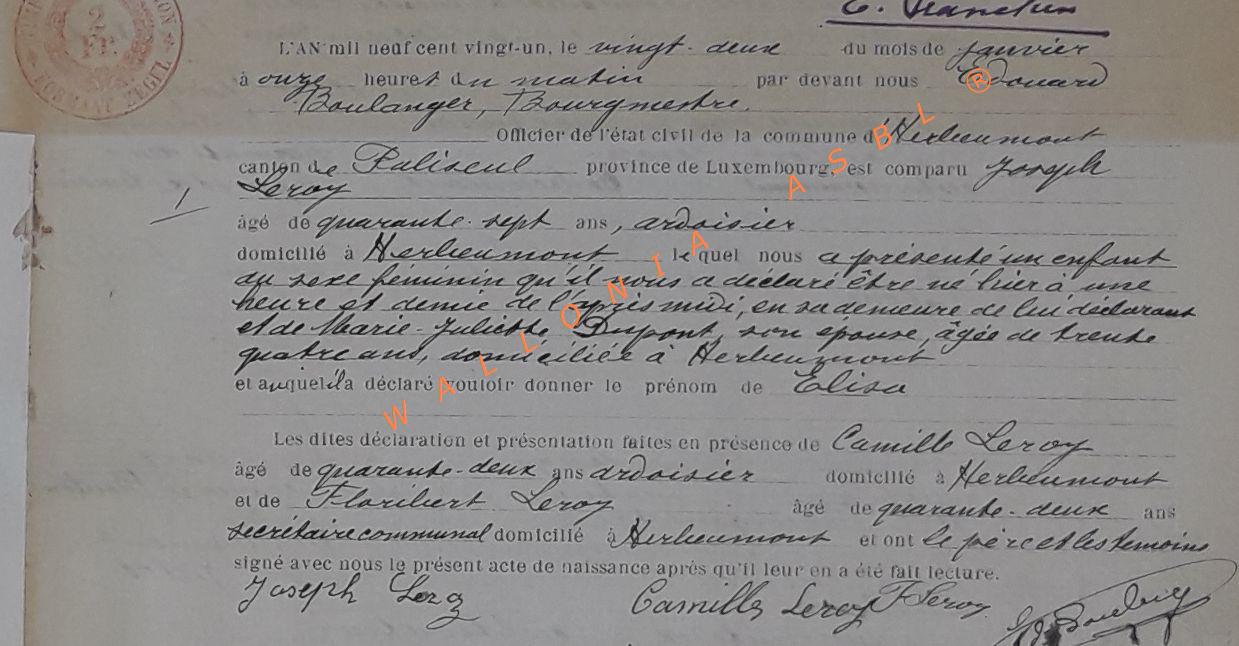 2
FR.
L'AN mil neuf cent vingt-un, le vingt-deux du mois de janvier
à onze heures du matin par devant nous Edouard
Boulanger, Bourgmestre.
Officier de l'état civil de la commune d'Herbeumont
canton de Paliseul province de Luxembourg, est comparu Joseph
Leroy
1
âgé de quarante-sept ans, ardoisier
domicilié à Herbeumont lequel nous a présenté un enfant
du sexe féminin qu'il nous a déclaré être né hier à une
heure et demie de l'après midi, en sa demeure de lui déclarant
et de Marie-Juliette Dupont, son epouse, âgée de trente
quatre ans, domiciliée à Herbeumont
et auquel il a déclaré vouloir donner le prénom de Elisa
Les dites déclaration et présentation faites en présence de Camille Leroy
âgé de quarante-deux ans ardoisier domicilié à Herbeumont
et de Floribert Leroy âgé de quarante-deux ans
secrétaire communal domicilié à Herbeumont et ont le père et les témoins
signé avec nous le présent acte de naissance après qu'il leur en a été fait lecture.
Joseph Leroy Camille Leroy F Leroy
WALLONIA ASBL ®